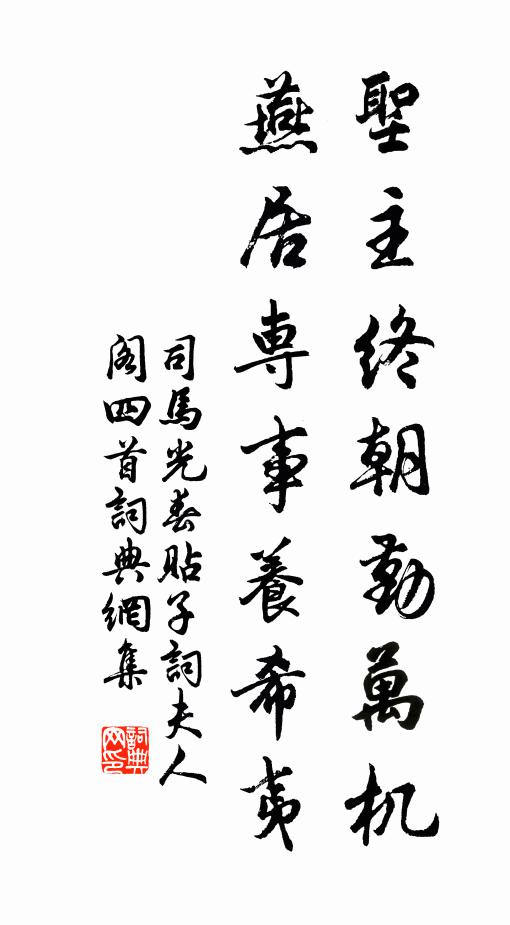 聖主終朝勤萬机
燕居專事養希夷
司馬光春貼子詞夫人
閣四首詞典網集
詞典网印